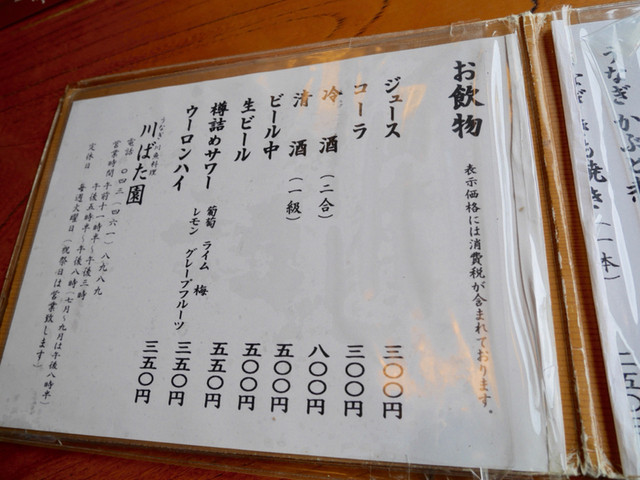 お飲物
表示価格には消費税が含まれております。
ジュース 三〇〇円
コーラ 三〇〇円
冷酒（二合） 八〇〇円
清酒（一級） 五〇〇円
ビール中 五〇〇円
生ビール 五五〇円
樽詰めサワー 葡萄 ライム 梅 レモン グレープフルーツ 三五〇円
ウーロンハイ 三五〇円
うなぎ・川魚料理
川ばた園
電話 〇四三（四六一）八九八九
営業時間 午前十一時半～午後三時
午後五時半～午後八時 七月～九月は午後八時半）
定休日 毎週火曜日（祝祭日は営業致します）
うなぎ かぶと
焼き（一本）
二五〇